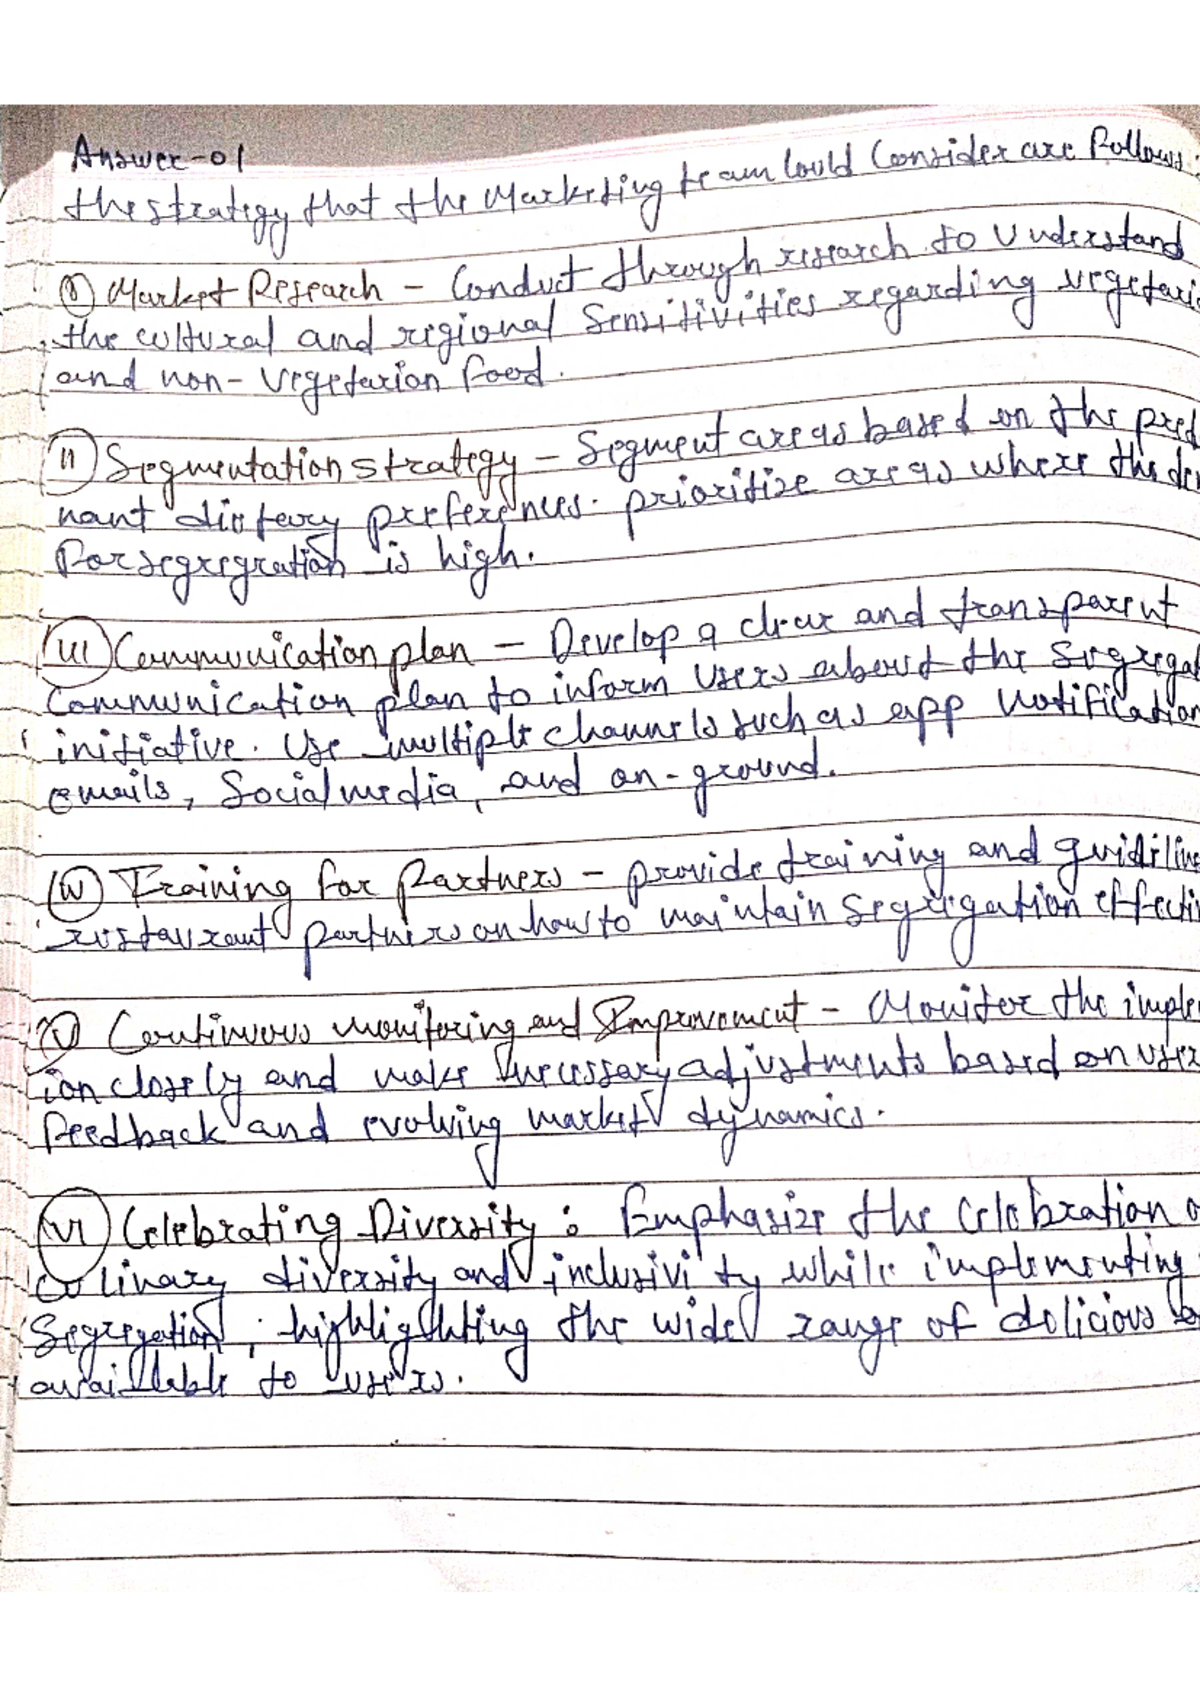 Answer-01
the strategy that the Marketing team Could Consider are follows:
(i) Market Research - Conduct through research to Understand
the cultural and regional Sensitivities regarding vegetari
and non-vegetarion food.
(ii) Segmentation strategy - Segment areas based on the pred
nant dietary preferences. prioritize areas where the de
For segregration is high.
(iii) Communication plan - Develop a clear and transparent
Communication plan to inform Users about the Segregat
initiative. Use multiple channels such as app Notification
emails, Social media, and on-ground.
(iv) Training for Partners - provide training and guideline
restaurant partners on how to maintain segregation effecti
(v) Continuous monitoring and Improvement - Monitor the imple
ion closely and make necessary adjustments based on user
feedback and evolving market dynamics.
(vi) Celebrating Diversity : Emphasize the Celebration o
Culinary diversity and inclusivity while implementing
Segregation, highlighting the wide range of delicious
available to users.